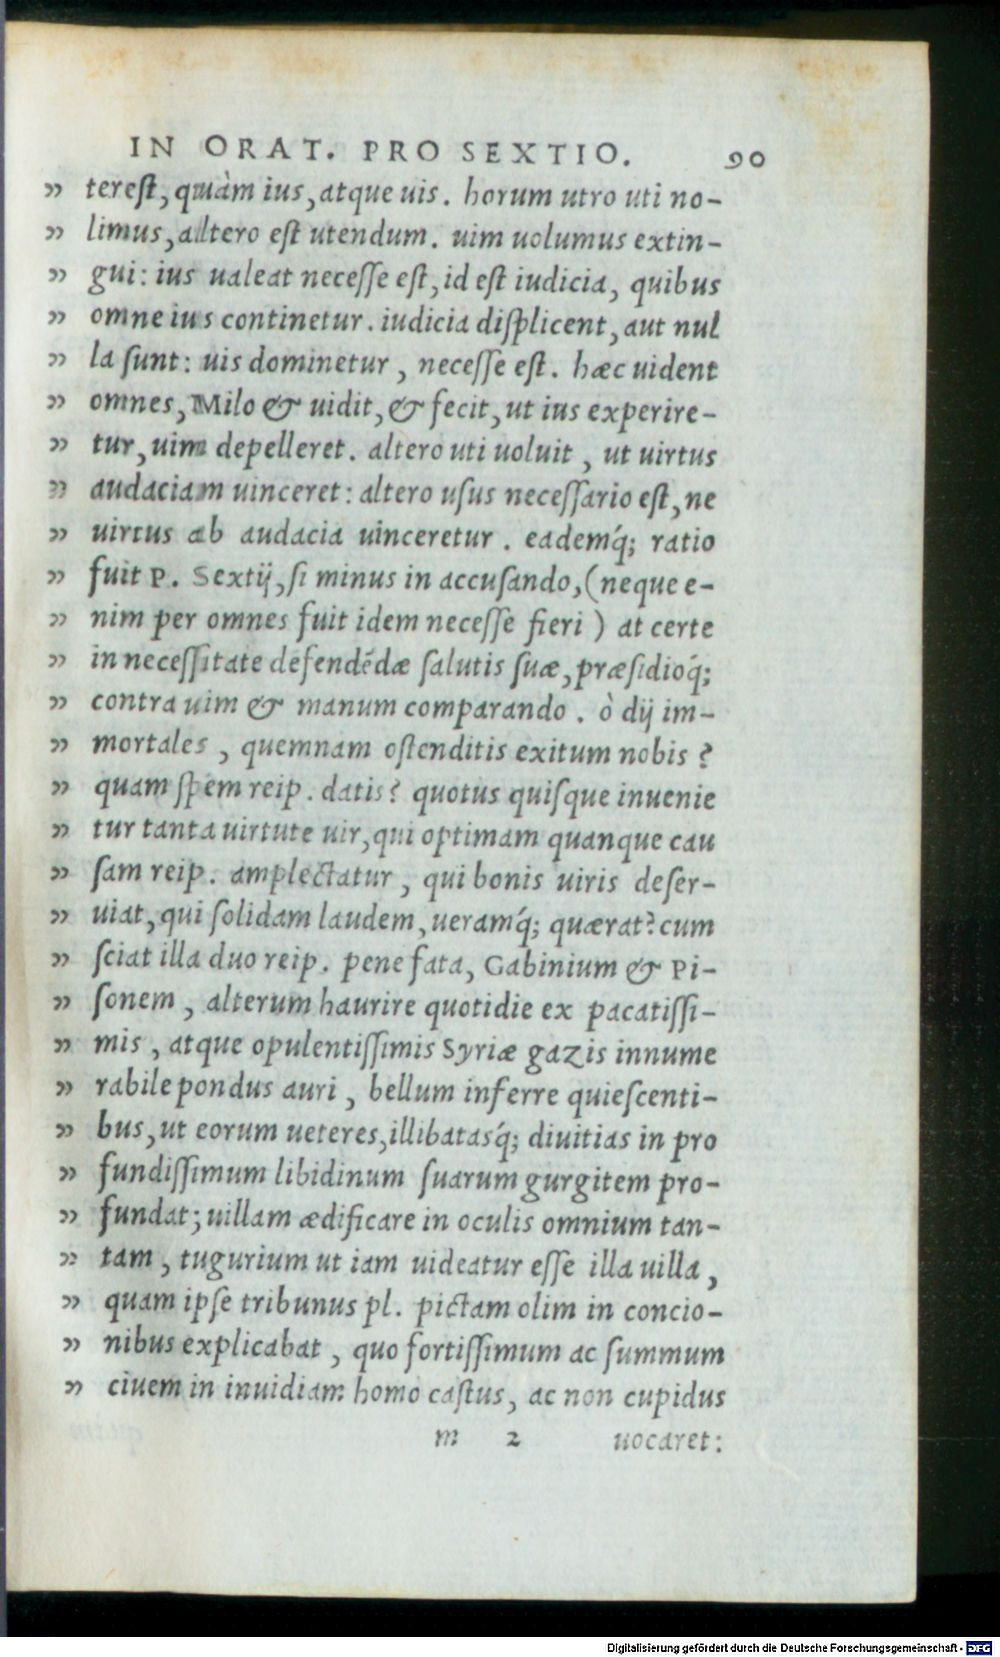 IN ORAT. PRO SEXTIO. 90
” terest, quàm ius, atque uis. horum utro uti no-
” limus, altero est utendum. uim uolumus extin-
” gui: ius ualeat necesse est, id est iudicia, quibus
” omne ius continetur. iudicia displicent, aut nul
” la sunt: uis dominetur, necesse est. hæc uident
” omnes, Milo & uidit, & fecit, ut ius experire-
” tur, uim depelleret. altero uti uoluit, ut uirtus
” audaciam uinceret: altero usus necessario est, ne
” uirtus ab audacia uinceretur. eademq́; ratio
” fuit P. Sextij, si minus in accusando, (neque e-
” nim per omnes fuit idem necesse fieri) at certe
” in necessitate defendẽdæ salutis suæ, præsidioq́;
” contra uim & manum comparando. ò dij im-
” mortales, quemnam ostenditis exitum nobis?
” quam spem reip. datis? quotus quisque inuenie
” tur tanta uirtute uir, qui optimam quanque cau
” sam reip. amplectatur, qui bonis uiris deser-
” uiat, qui solidam laudem, ueramq́; quærat? cum
” sciat illa duo reip. pene fata, Gabinium & Pi-
” sonem, alterum haurire quotidie ex pacatissi-
” mis, atque opulentissimis Syriæ gazis innume
” rabile pondus auri, bellum inferre quiescenti-
” bus, ut eorum ueteres, illibatasq́; diuitias in pro
” fundissimum libidinum suarum gurgitem pro-
” fundat; uillam ædificare in oculis omnium tan-
” tam, tugurium ut iam uideatur esse illa uilla,
” quam ipse tribunus pl. pictam olim in concio-
” nibus explicabat, quo fortissimum ac summum
” ciuem in inuidiam homo castus, ac non cupidus
m 2 uocaret:
Digitalisierung gefördert durch die Deutsche Forschungsgemeinschaft - DFG